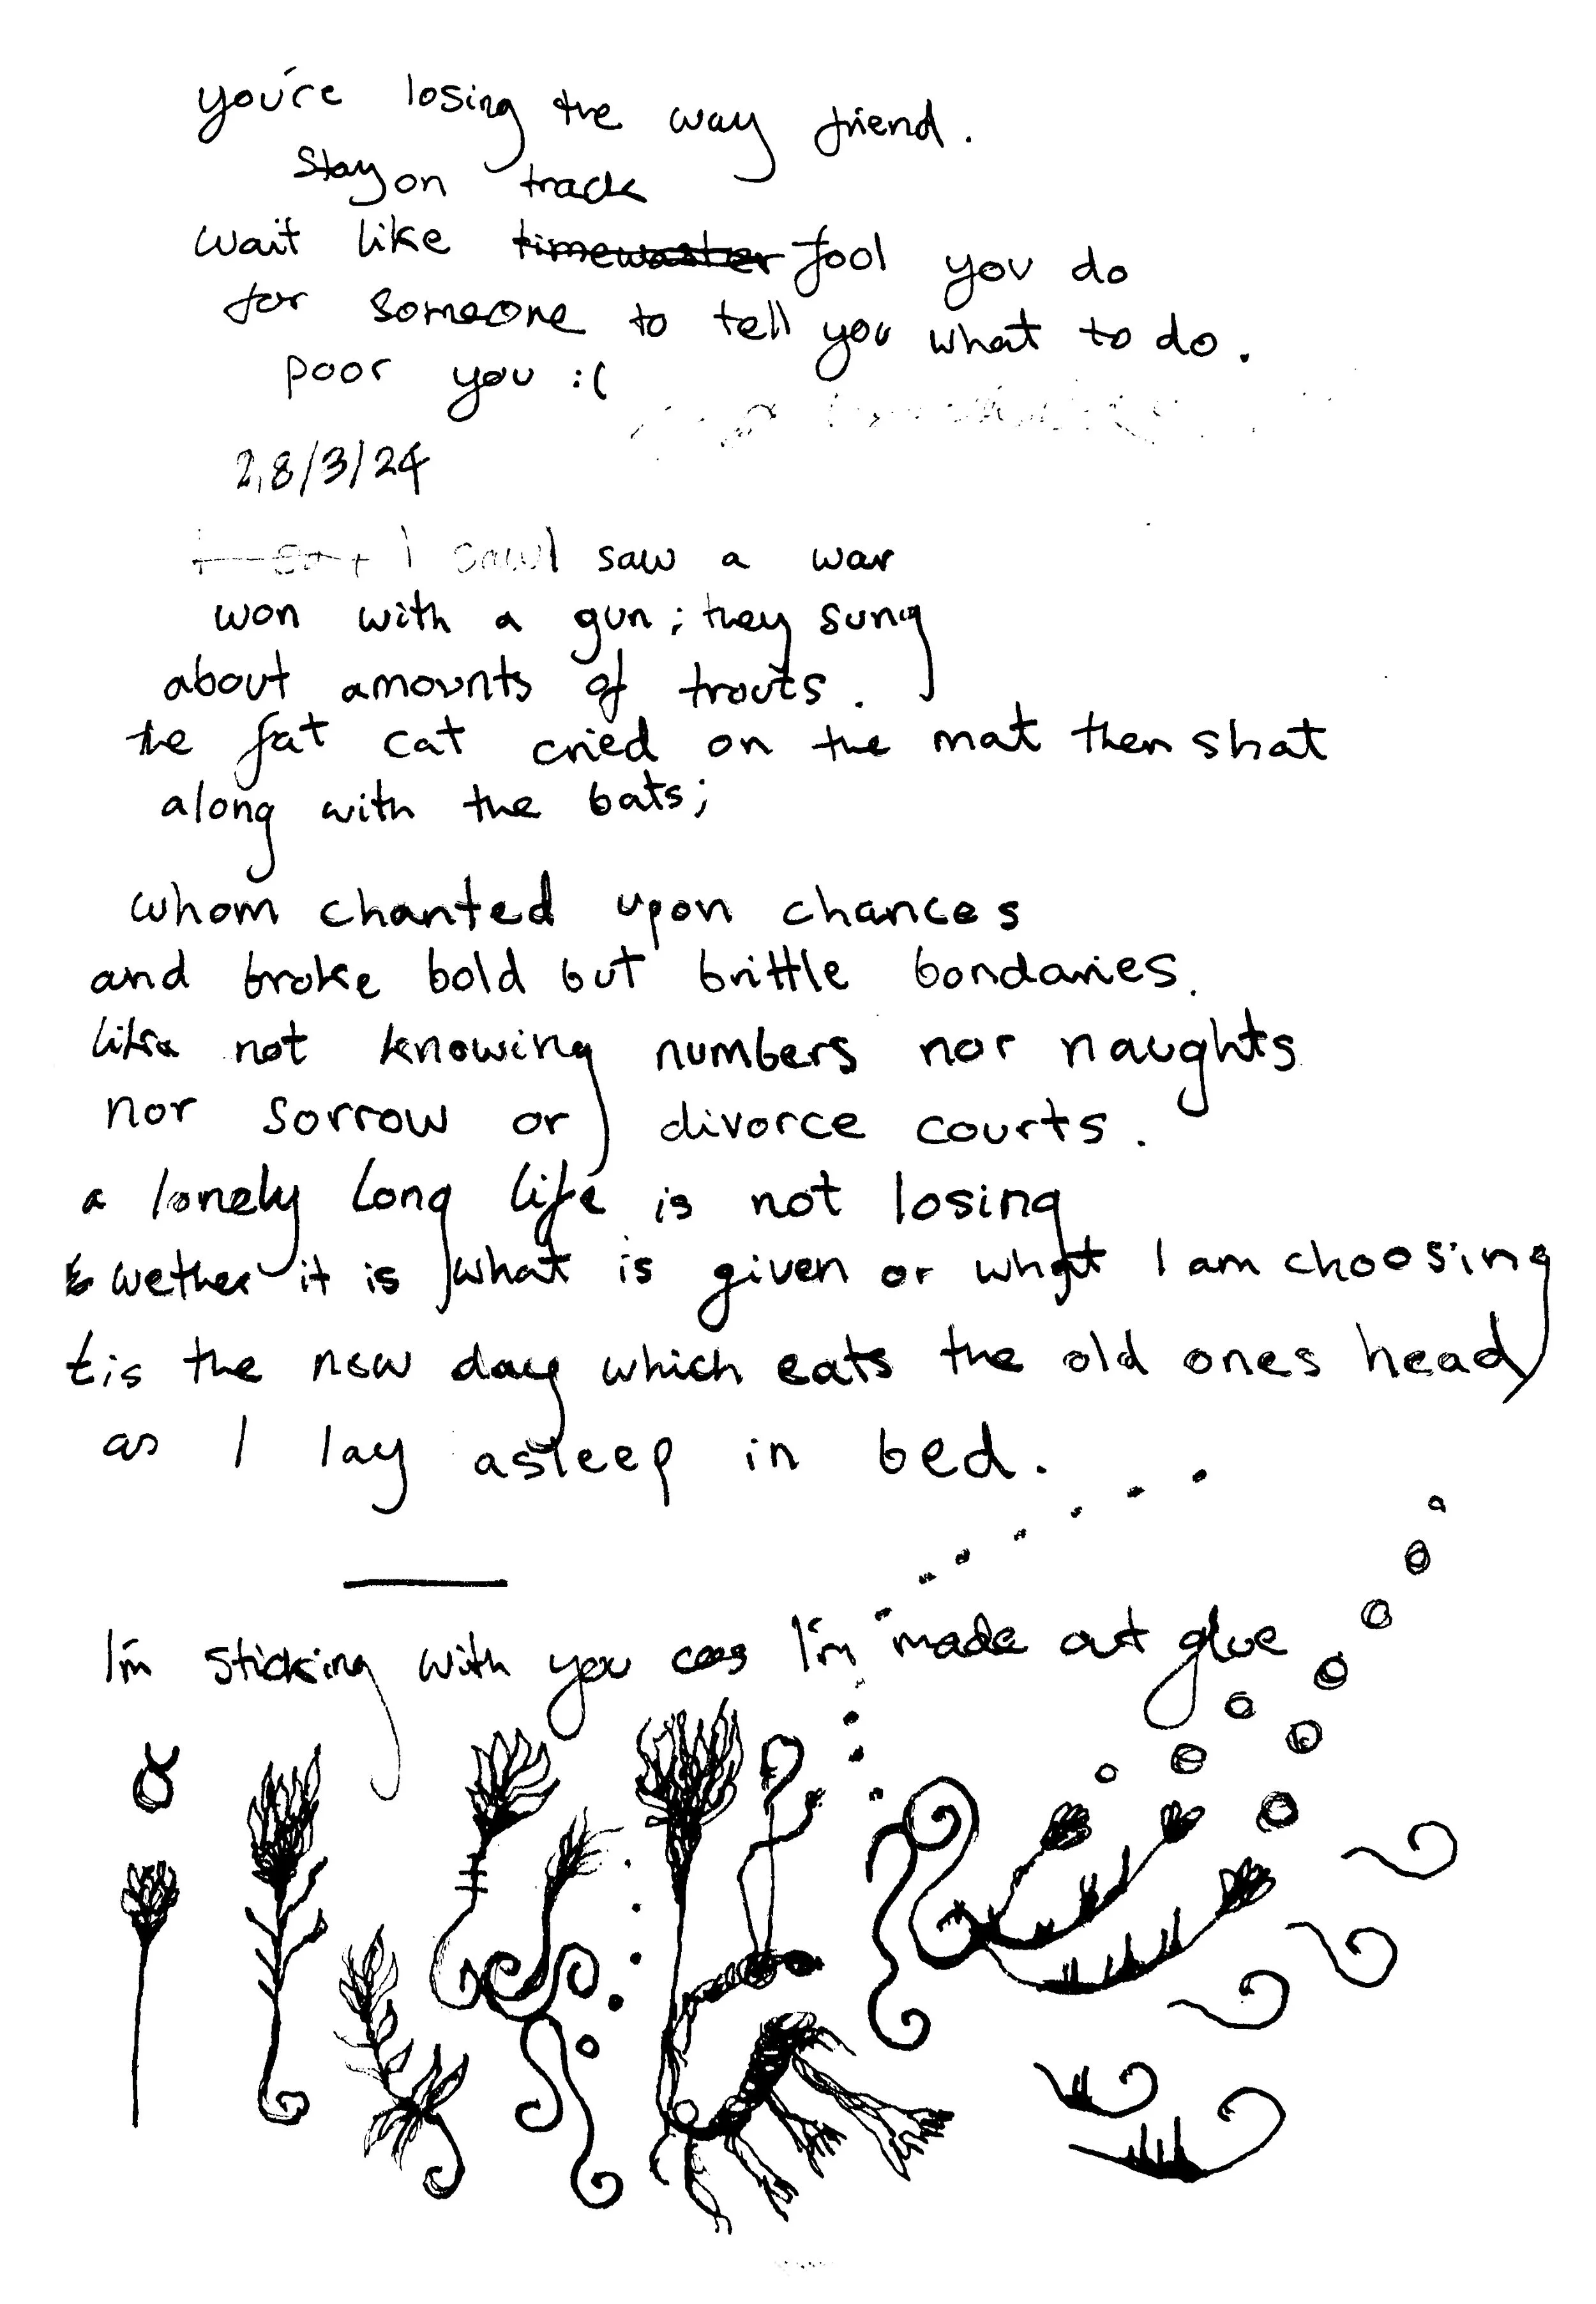 you're losing the way friend.
stay on track
wait like timewaster fool you do
for someone to tell you what to do.
poor you :(
28/3/24
I saw I saw a war
won with a gun; they sung
about amounts of trouts.
the fat cat cried on the mat then shat
along with the bats;
whom chanted upon chances
and broke bold but brittle bondaries.
like not knowing numbers nor naughts
nor sorrow or divorce courts.
a lonely long life is not losing
& wether it is what is given or what I am choosing
tis the new day which eats the old ones head
as I lay asleep in bed.
I'm sticking with you cos I'm made out glue